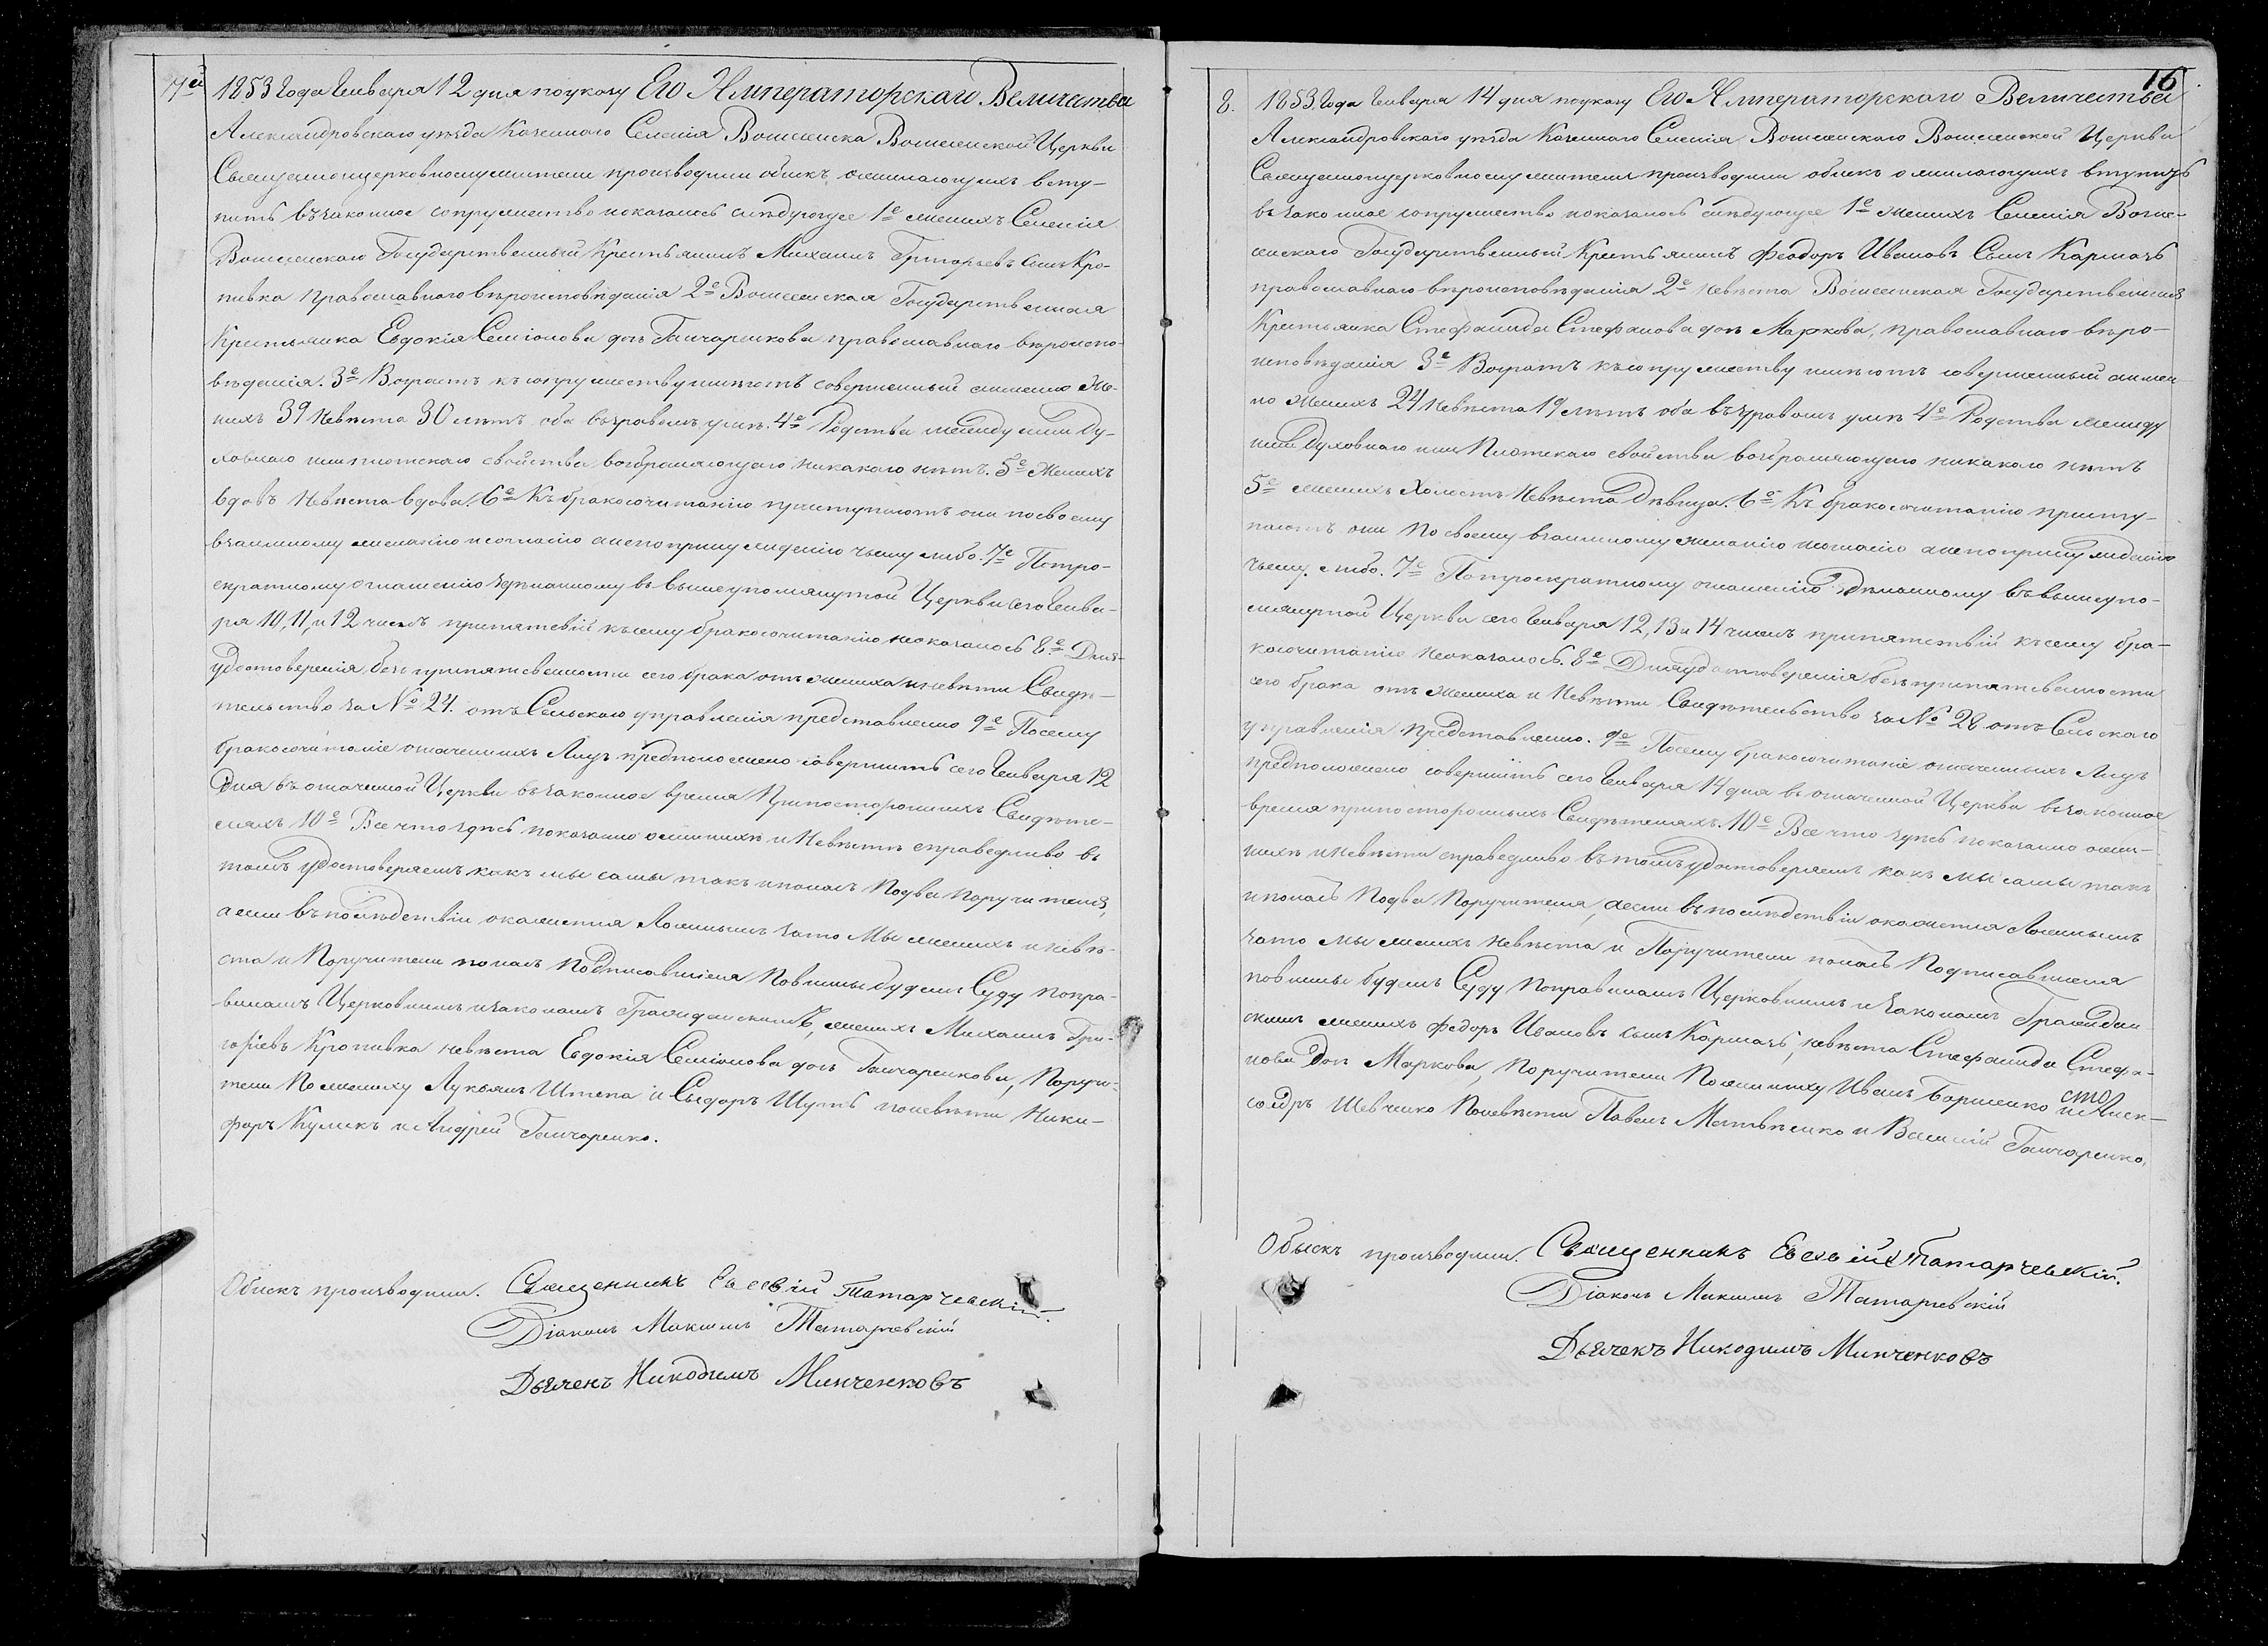 7й 1853 Года Генваря 12 дня по указу Его Императорскаго Величества
Александровскаго уезда Казеннаго Селенія Вошеменска Вошеменской Церкви
Священноцерковнослужители производили обыскъ о желающихъ всту-
пить въ законное сопружество и оказалось слѣдующее 1е женихъ Селенія
Государственный Крестьянинъ Михаилъ Григорьевъ сынъ Кро-
пивка православнаго вѣроисповѣданія 2е Государственная
Крестьянка Евдокія Семіонова дочь Ганчаренкова православнаго вѣроиспо-
вѣданія. 3е Возрастъ къ сопружеству имѣютъ совершенный а именно Же-
нихъ 39 Невѣста 30 лѣтъ оба въ здравомъ умѣ. 4е Родства между ними ду-
ховнаго или плотскаго свойства возбраняющаго никакого нѣтъ. 5е Женихъ
вдовъ Невѣста вдова. 6е Къ бракосочитанію приступаютъ они по своему
взаимному желанію и согласію а не по принужденію чьему либо. 7е По тро-
екратному оглашенію здѣланному въ вышеупомянутой Церкви сего Генва-
ря 10, 11, и 12 числъ припятствій къ сему бракосочитанію неоказалось 8е Для
удостоверенія безъприпятсвенности сего брака отъ жениха и невѣсти Свидѣ-
тельство за № 24. отъ Сельскаго управленія представленно 9е Посему
бракосочитаніе означенныхъ Лицъ предположено совершить сего Генваря 12
дня въ означенной Церкви въ законное время При постороннихъ Свидѣте-
ляхъ 10е Все что здѣсь показанно о женихѣ и Невѣсте справедливо въ
томъ удостоверяемъ какъ мы сами такъ и по насъ По два Поручителя,
а если въ послѣдствіи окажется Ложнымъ за то Мы женихъ и невѣ-
ста и Поручители по насъ Подписавшіеся Повинны будемъ Суду по пра-
виламъ Церковнымъ и законамъ Гражданскимъ, женихъ Михаилъ Гри-
горіевъ Кропивка невѣста Евдокія Семіонова дочь Ганчаренкова, Поручи-
тели По жениху Лукьянъ Штепа и Сидоръ Шутъ по невѣсти Ники-
форъ Куликъ и Андрей Ганчаренко.
Обыскъ производили. Священникъ Евсевій Татарчевскій.
Діаконъ Максимъ Татарчевскій
Дьячекъ Никодимъ Минченковъ
16
8. 1853 Года Генваря 14 дня по указу Его Императорскаго Величества
Александровскаго уѣзда Казеннаго Селенія Церкви
Священноцерковнослужители производили обыскъ о желающихъ вступить
въ законное сопружество и оказалось слѣдующее 1е женихъ Селенія
Государственный Крестьянинъ Феодоръ Ивановъ Сынъ Кармачь
православнаго вѣроисповѣданія 2е Невѣста Государственная
Крестьянка Стефанида Стефанова дочь Маркова, православнаго вѣро-
исповѣданія 3е Возрастъ къ сопружеству имѣютъ совершенный а имен-
но Женихъ 24 Невѣста 19 лѣтъ оба въ здравомъ умѣ 4е Родства между
ними Духовнаго или Плотскаго свойства возбраняющаго никакого нѣтъ
5е женихъ Холостъ Невѣста Дѣвица. 6е Къ бракосочитанію присту-
паютъ они По своему взаимному желанію и согласію а не по принужденію
чьему либо. 7е По троекратному оглашенію здѣланному въ вышеупо-
мянутой Церкви сего Генваря 12, 13 и 14 числъ припятствій къ сему бра-
косочитанію неоказалось. 8е Для удостоверенія безъприпятсвенности
сего брака отъ жениха и Невѣсти Свидѣтельство за № 28 отъ Сельскаго
управленія представленно. 9е Посему бракосочитаніе означенныхъ Лицъ
предположено совершить сего Генваря 14 дня въ означенной Церкви въ законное
время при постороннихъ Свидѣтеляхъ. 10е Все что здѣсь показанно о жени-
хѣ и невѣсти справедливо въ томъ удостоверяемъ какъ мы сами такъ
и по насъ По два Поручителя, а если въ послѣдствіи окажется Ложнымъ
за то мы женихъ невѣста и Поручители по насъ Подписавшіеся
повинны будемъ Суду По правиламъ Церковнымъ и законамъ Граждан-
скимъ женихъ Федоръ Ивановъ сынъ Кармачь, невѣста Стефанида Стефа-
нова Дочь Маркова, Поручители По жениху Иванъ Борисенко и Алек-
сандръ Шевченко По невѣсти Павелъ Матвѣенко и Василій Ганчаренко,
Обыскъ производили. Священникъ Евсевій Татарчевскій.
Діаконъ Максимъ Татарчевскій
Дьячекъ Никодимъ Минченковъ